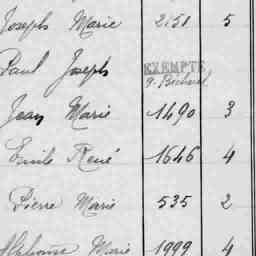 Joseph Marie 2151 5
Paul Joseph EXEMPTÉ
Jean Marie 1490 3
Emile René 1646 4
Pierre Marie 535 2
Alphonse Marie 1999 4